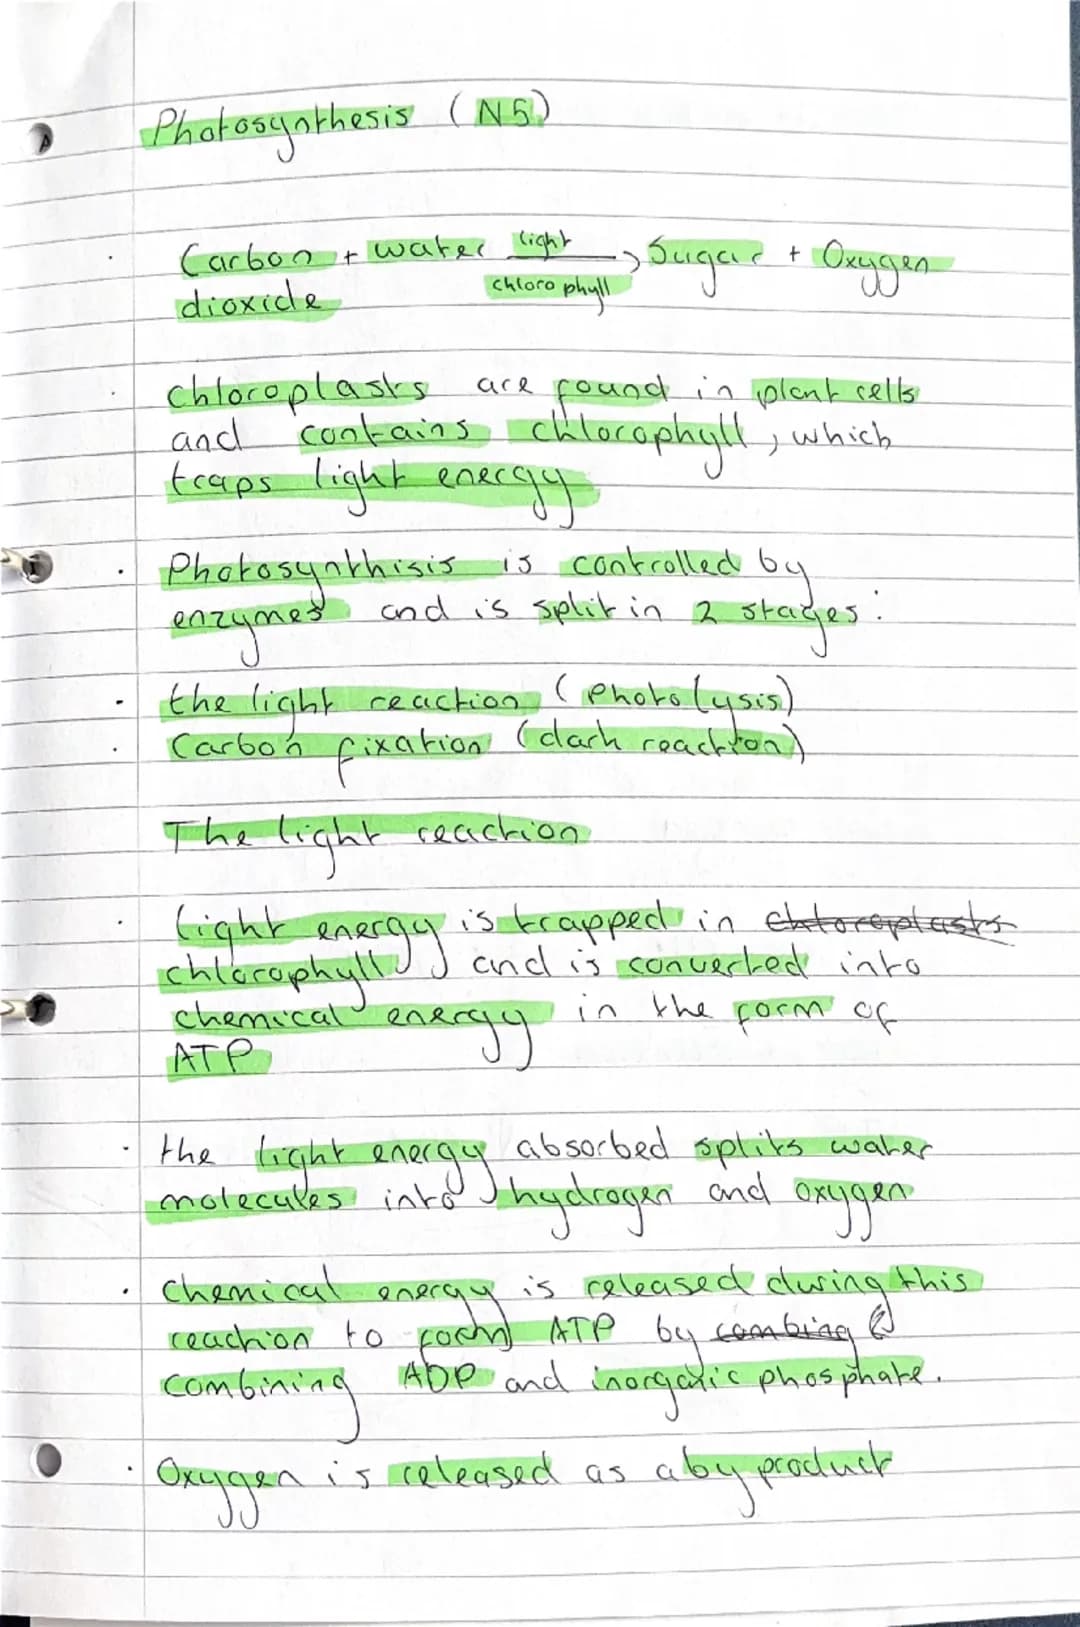 Photosynthesis (N5)
Carbon + water light → Sugar + Oxygen
dioxide chlorophyll
chloroplasts are found in plant cells
and contains chlorophyll, which
traps light energy
Photosynthisis is controlled by
enzymes and is split in 2 stages:
the light reaction (Photolysis)
Carbon fixation (dark reaction)
The light reaction
Light energy is trapped in chloroplasts
chlorophyll and is converted into
chemical energy in the form of
ATP
the light energy absorbed splits water
molecules into hydrogen and oxygen
Chemical energy is released during this
reaction to form ATP by combing
combining ADP and inorganic phosphate.
Oxygen is released as a by product